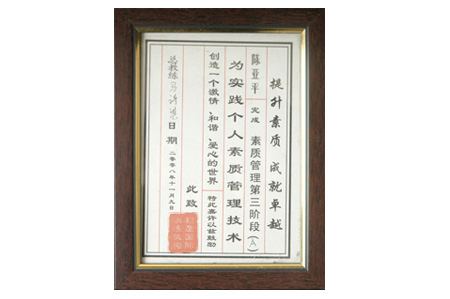 提升素质 成就卓越
陈亚平 完成 素质管理第三阶段(A)
为实践个人素质管理技术
创造一个激情、和谐、爱心的世界 特此嘉许以兹鼓励
此致
总教练
日期 二零零八年十一月九日